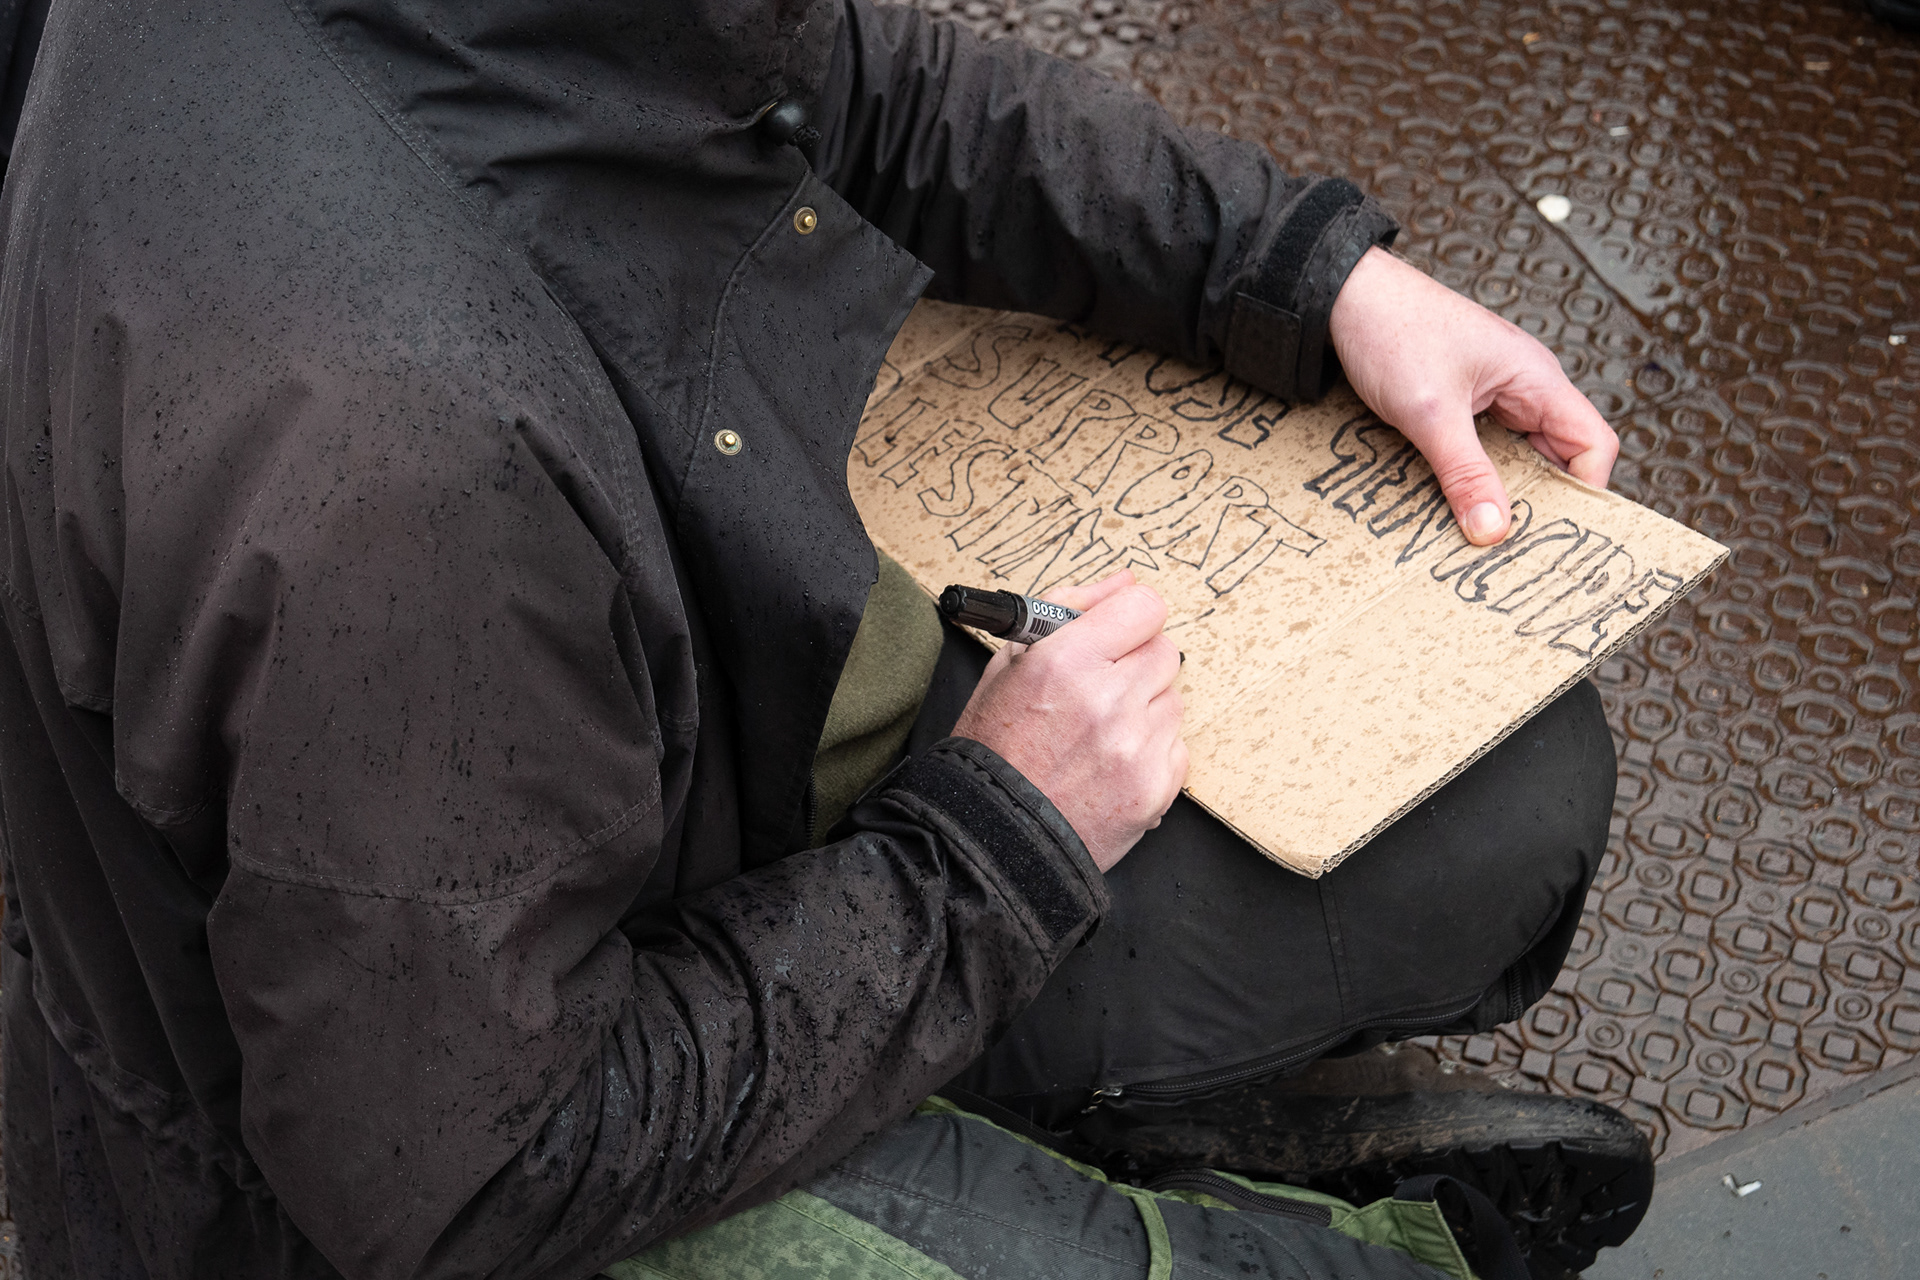 GENOCIDE
SUPPORT
PALESTINE
2300